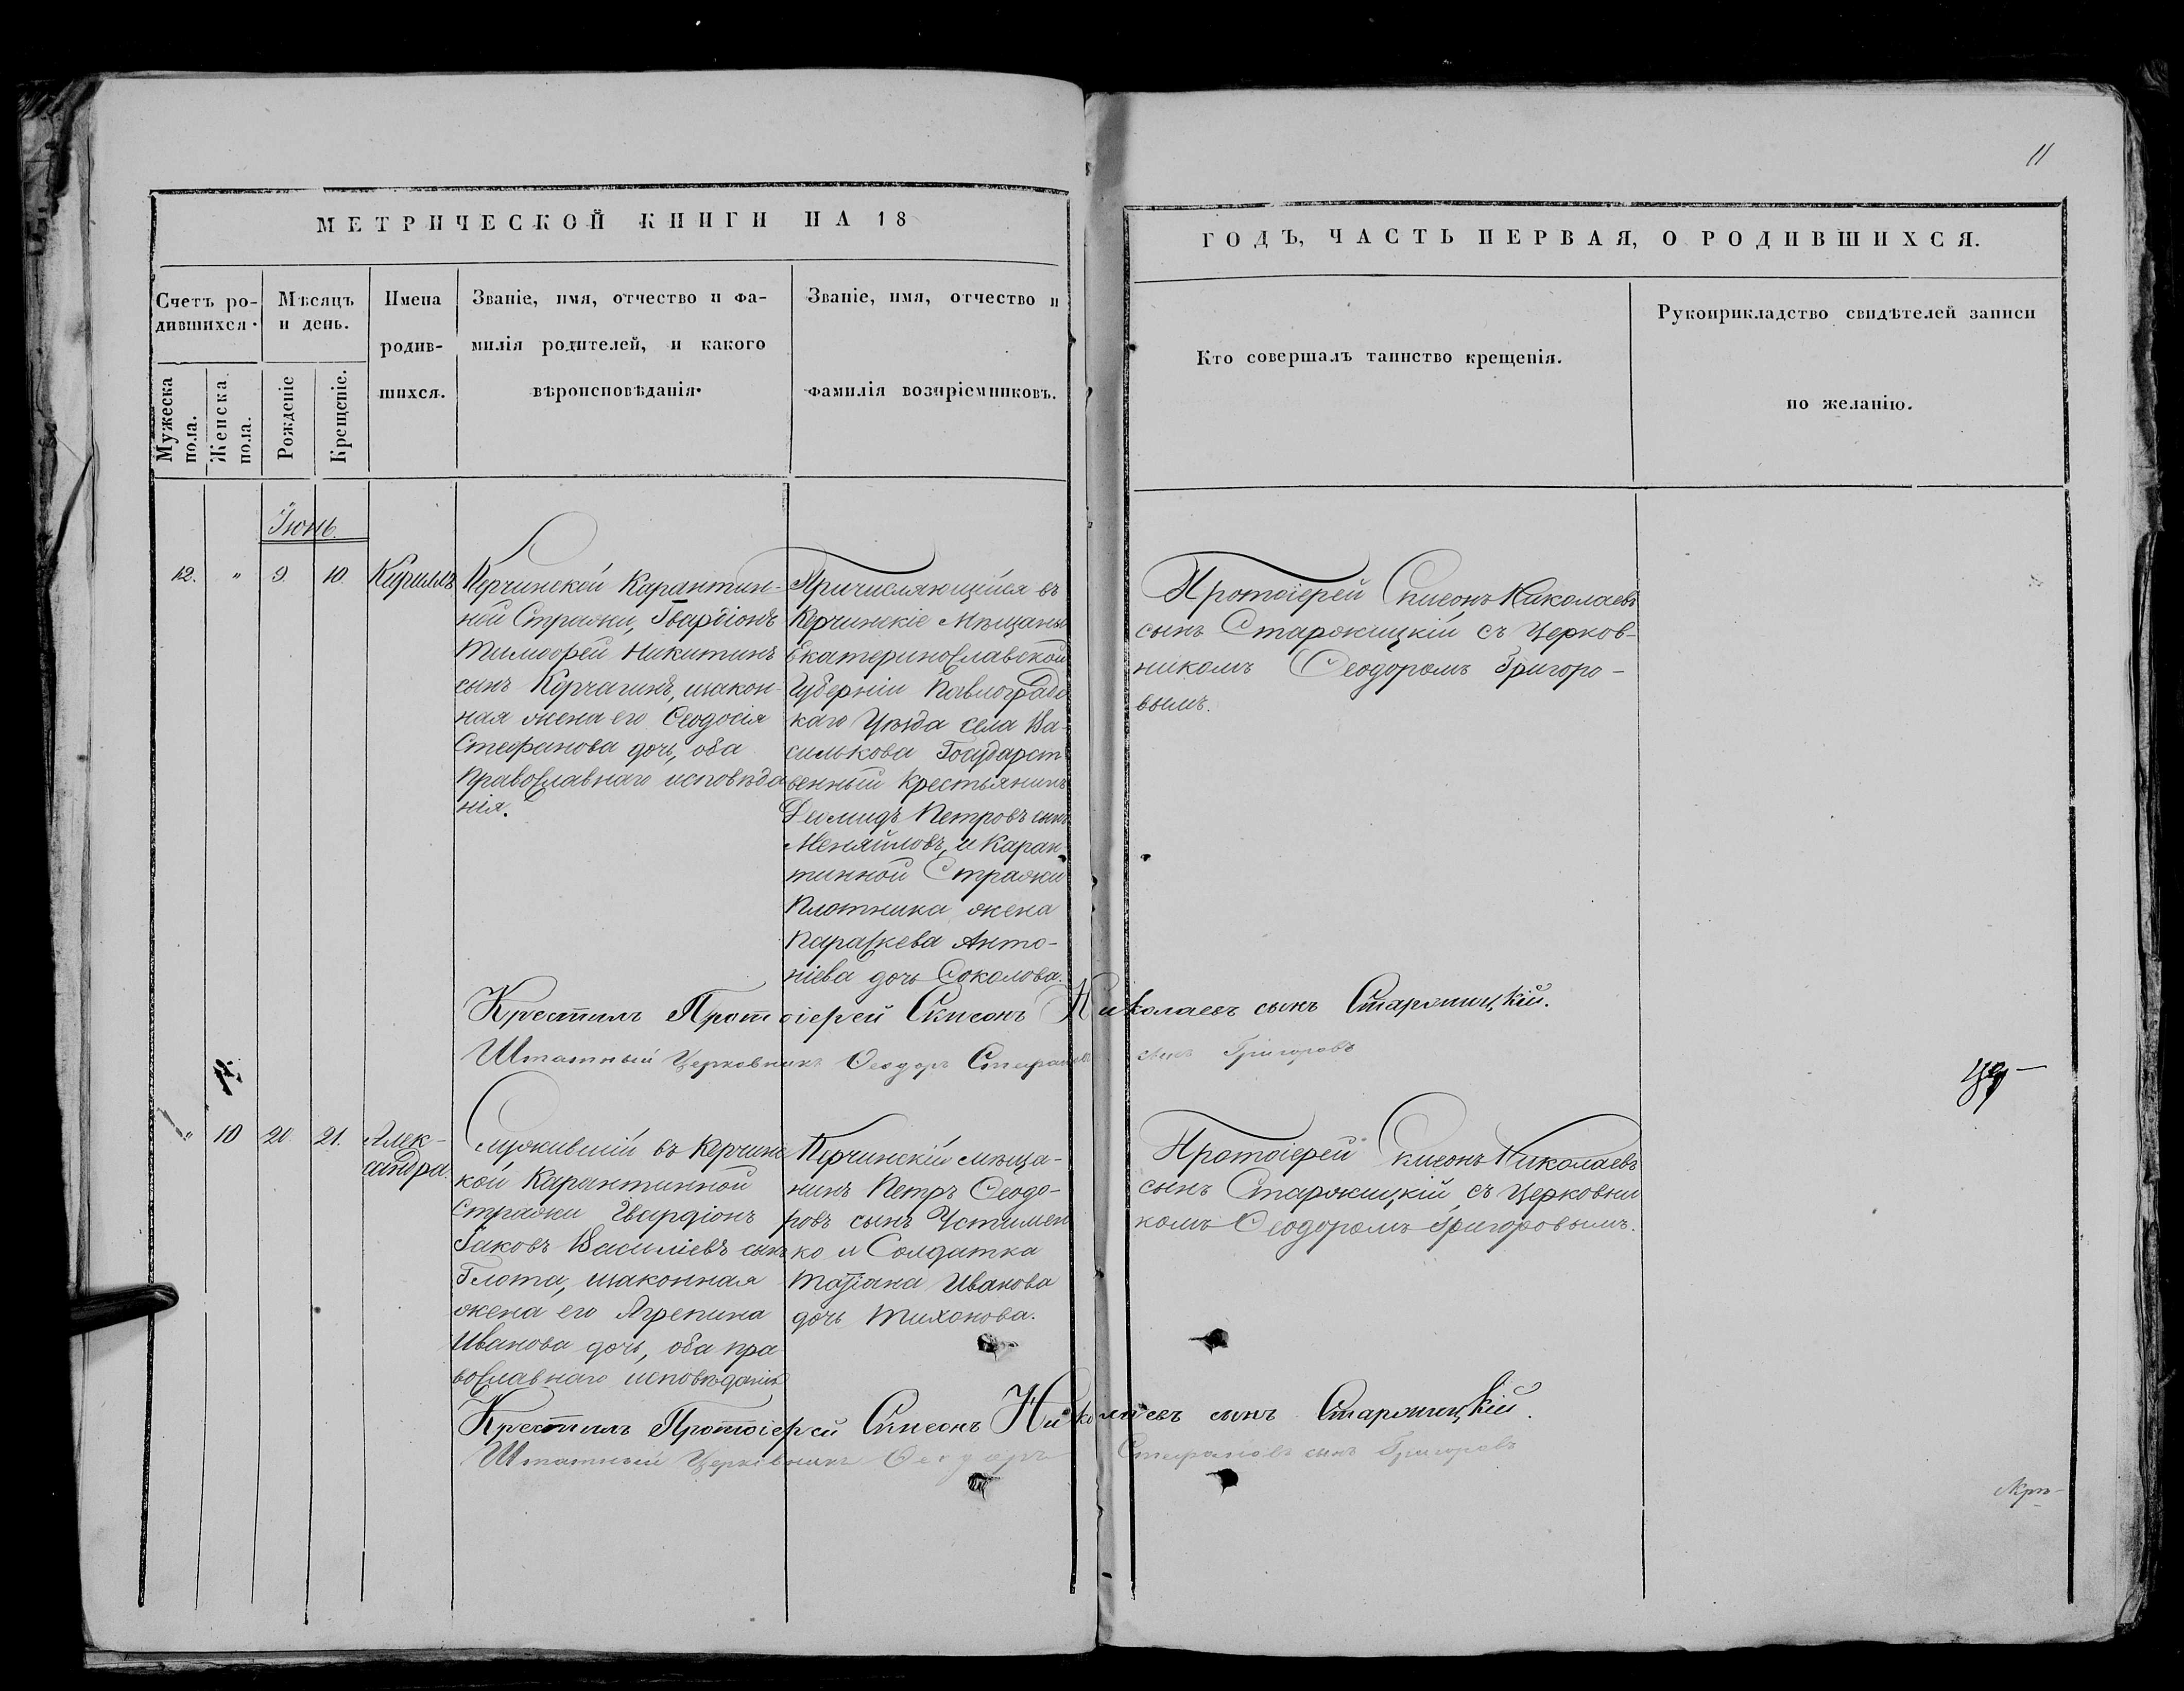 11
МЕТРИЧЕСКОЙ КНИГИ НА 18
ГОДЪ, ЧАСТЬ ПЕРВАЯ, О РОДИВШИХСЯ.
Счетъ ро-
дившихся.
Мужеска
пола.
Женска
пола.
Мѣсяцъ
и день.
Рожденіе
Крещеніе.
Имена
родив-
шихся.
Званіе, имя, отчество и фа-
милія родителей, и какого
вѣроисповѣданія.
Званіе, имя, отчество и
фамилія воспріемниковъ.
Кто совершалъ таинство крещенія.
Рукоприкладство свидѣтелей записи
по желанію.
Іюнь.
12. " 9. 10. Кириллъ
Керчинской Карантин-
ной Стражи, Гвардіонъ
Тимоѳей Никитинъ
сынъ Корчагинъ, изакон-
ная жена его Ѳеодосія
Стефанова дочь, оба
Православнаго исповѣда
нія.
Причисляющійся въ
Керчинскіе Мѣщаны
Екатеринославской
Губерніи Павлоградс
каго Уѣзда села Ва-
силькова Государст
венный Крестьянинъ
Деомидъ Петровъ сынъ
Меняйловъ, и Каран
тинной Стражи
Плотника жена
Параскева Анто-
ніева дочь Соколова.
Протоіерей Симеонъ Николаевъ
сынъ Старжицкій съ Церков-
никомъ Ѳеодоромъ Григоро-
вымъ.
Крестилъ Протоіерей Симеонъ Николаевъ сынъ Старжицкій.
Штатный Церковникъ Ѳеодоръ Стефановъ сынъ Григоровъ
" 10 20 21. Алек-
сандра.
Служившій въ Керчинс
кой Карантинной
Стражи Гвардіонъ
Іаковъ Василіевъ сынъ
Глота, изаконная
жена его Агрепина
Иванова дочь, оба пра
вославнаго исповѣданія
Керчинскій мѣща-
нинъ Петръ Ѳеодо-
ровъ сынъ Устимен
ко и Солдатка
Татіана Иванова
дочь Тихонова.
Протоіерей Симеонъ Николаевъ
сынъ Старжицкій, съ Церковни
комъ Ѳеодоромъ Григоровымъ.
Крестилъ Протоіерей Симеонъ Николаевъ сынъ Старжицкій.
Штатный Церковникъ Ѳеодоръ Стефановъ сынъ Григоровъ